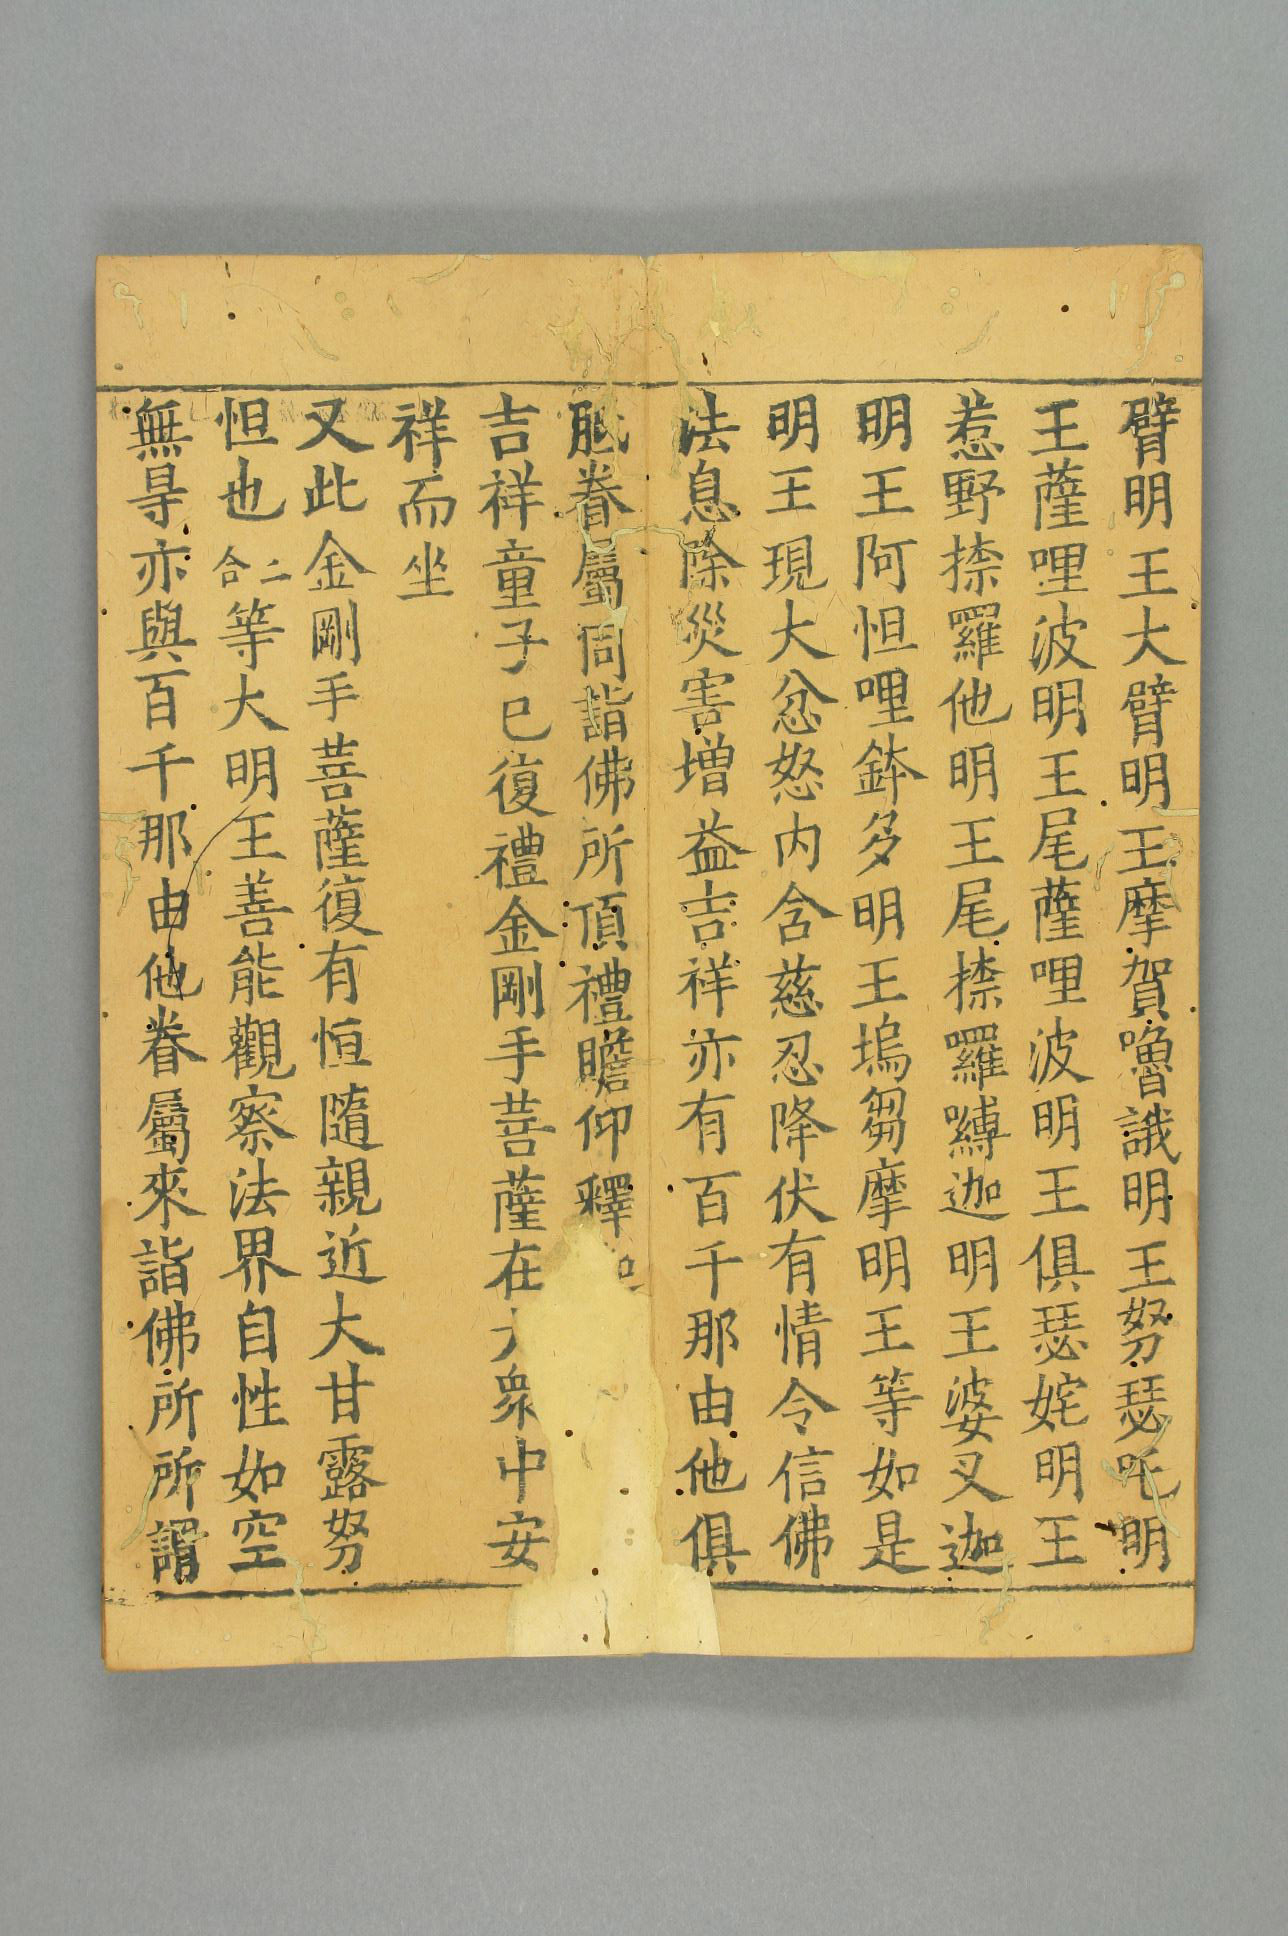 臂明王大臂明王摩賀嚕誐明王努瑟吒明
王薩哩波明王尾薩哩波明王俱瑟姹明王
惹野捺羅他明王尾捺羅嚩迦明王婆叉迦
明王阿怛哩鉢多明王塢芻摩明王等如是
明王現大忿怒内含慈忍降伏有情令信佛
法息除災害增益吉祥亦有百千那由他俱
胝眷屬同詣佛所頂禮瞻仰釋
吉祥童子已復禮金剛手菩薩在大衆中安
祥而坐
又此金剛手菩薩復有恒隨親近大甘露努
怛也二合等大明王善能觀察法界自性如空
無㝵亦與百千那由他眷屬來詣佛所所謂